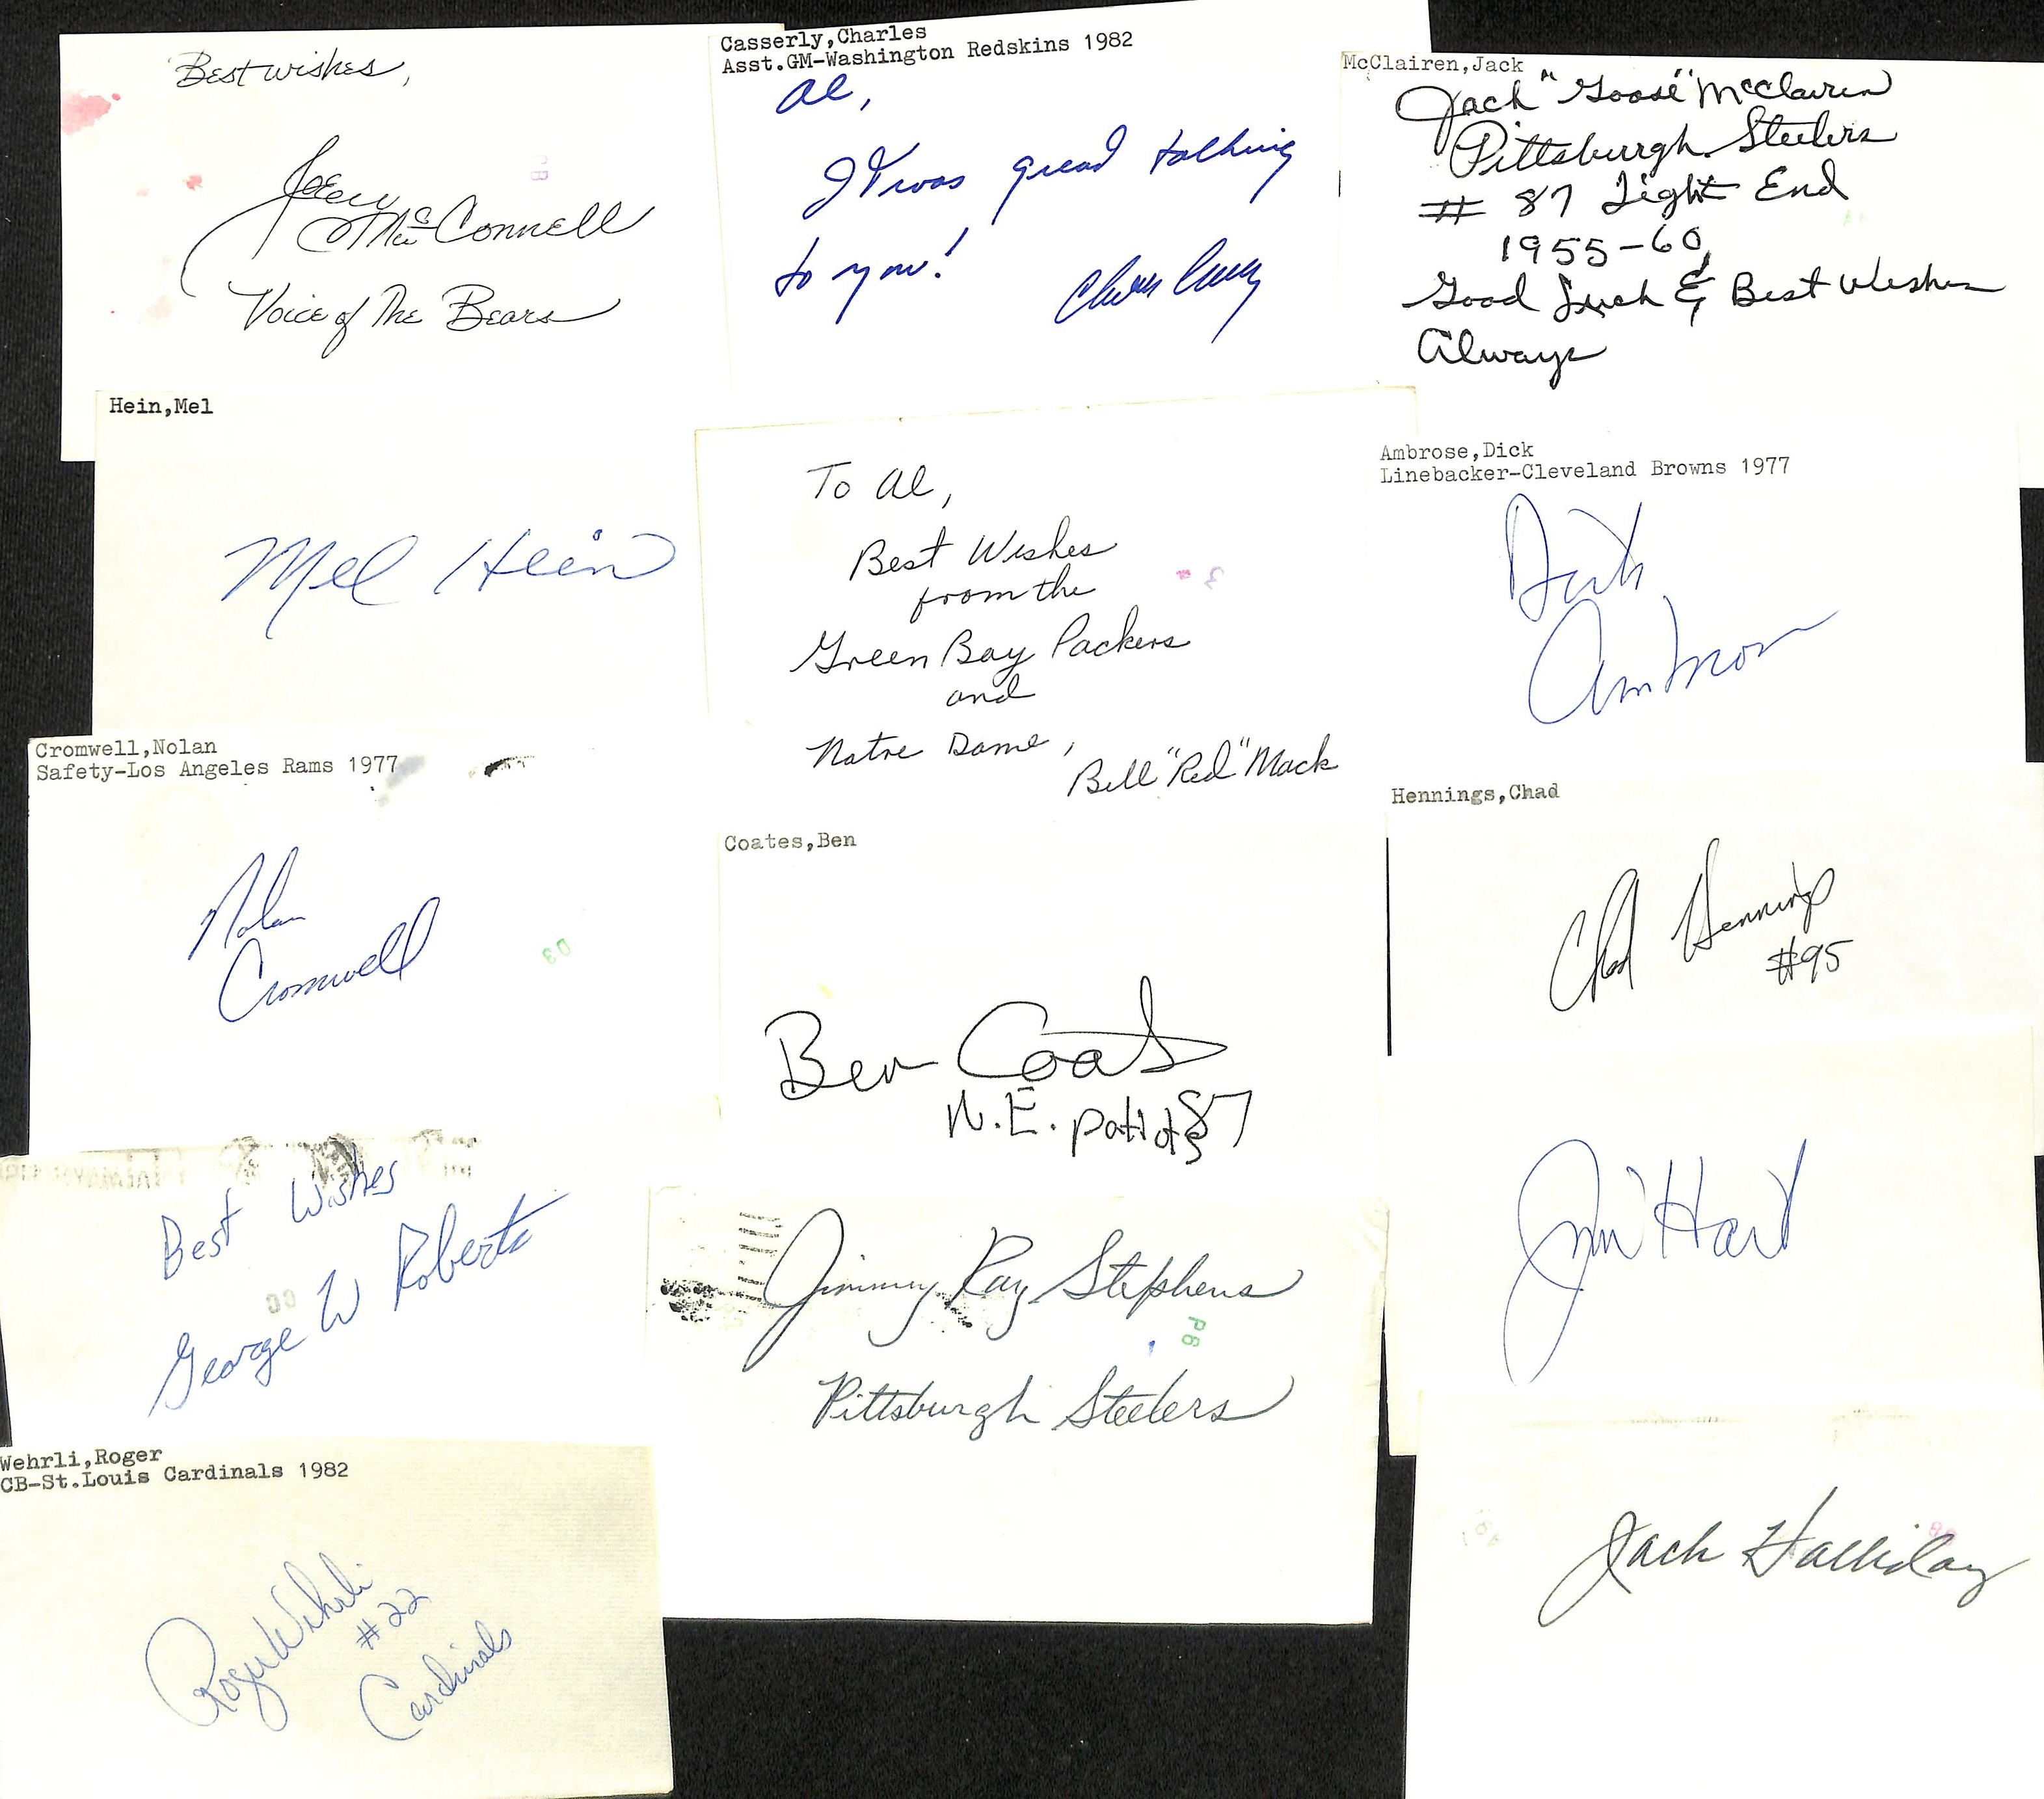 Best wishes,
Joe McConnell
Voice of The Bears
Casserly,Charles
Asst.GM-Washington Redskins 1982
Al,
It was great talking
to you!
McClairen,Jack
Jack "Goose" McClairen
Pittsburgh Steelers
# 87 Tight End
1955-60
Good Luck & Best Wishes
Always
Hein,Mel
Mel Hein
To Al,
Best Wishes
from the
Green Bay Packers
and
Notre Dame,
Bill "Red" Mack
Ambrose,Dick
Linebacker-Cleveland Browns 1977
Dick
Ambrose
Cromwell,Nolan
Safety-Los Angeles Rams 1977
Nolan
Cromwell
D3
Coates,Ben
Ben Coates
N.E. Patriots 87
Hennings,Chad
Chad Hennings
#95
Best Wishes
George W Roberts
Jimmy Ray Stephens
P6
Pittsburgh Steelers
Jim Hart
Wehrli,Roger
CB-St.Louis Cardinals 1982
Roger Wehrli
#22
Cardinals
Jack Halliday